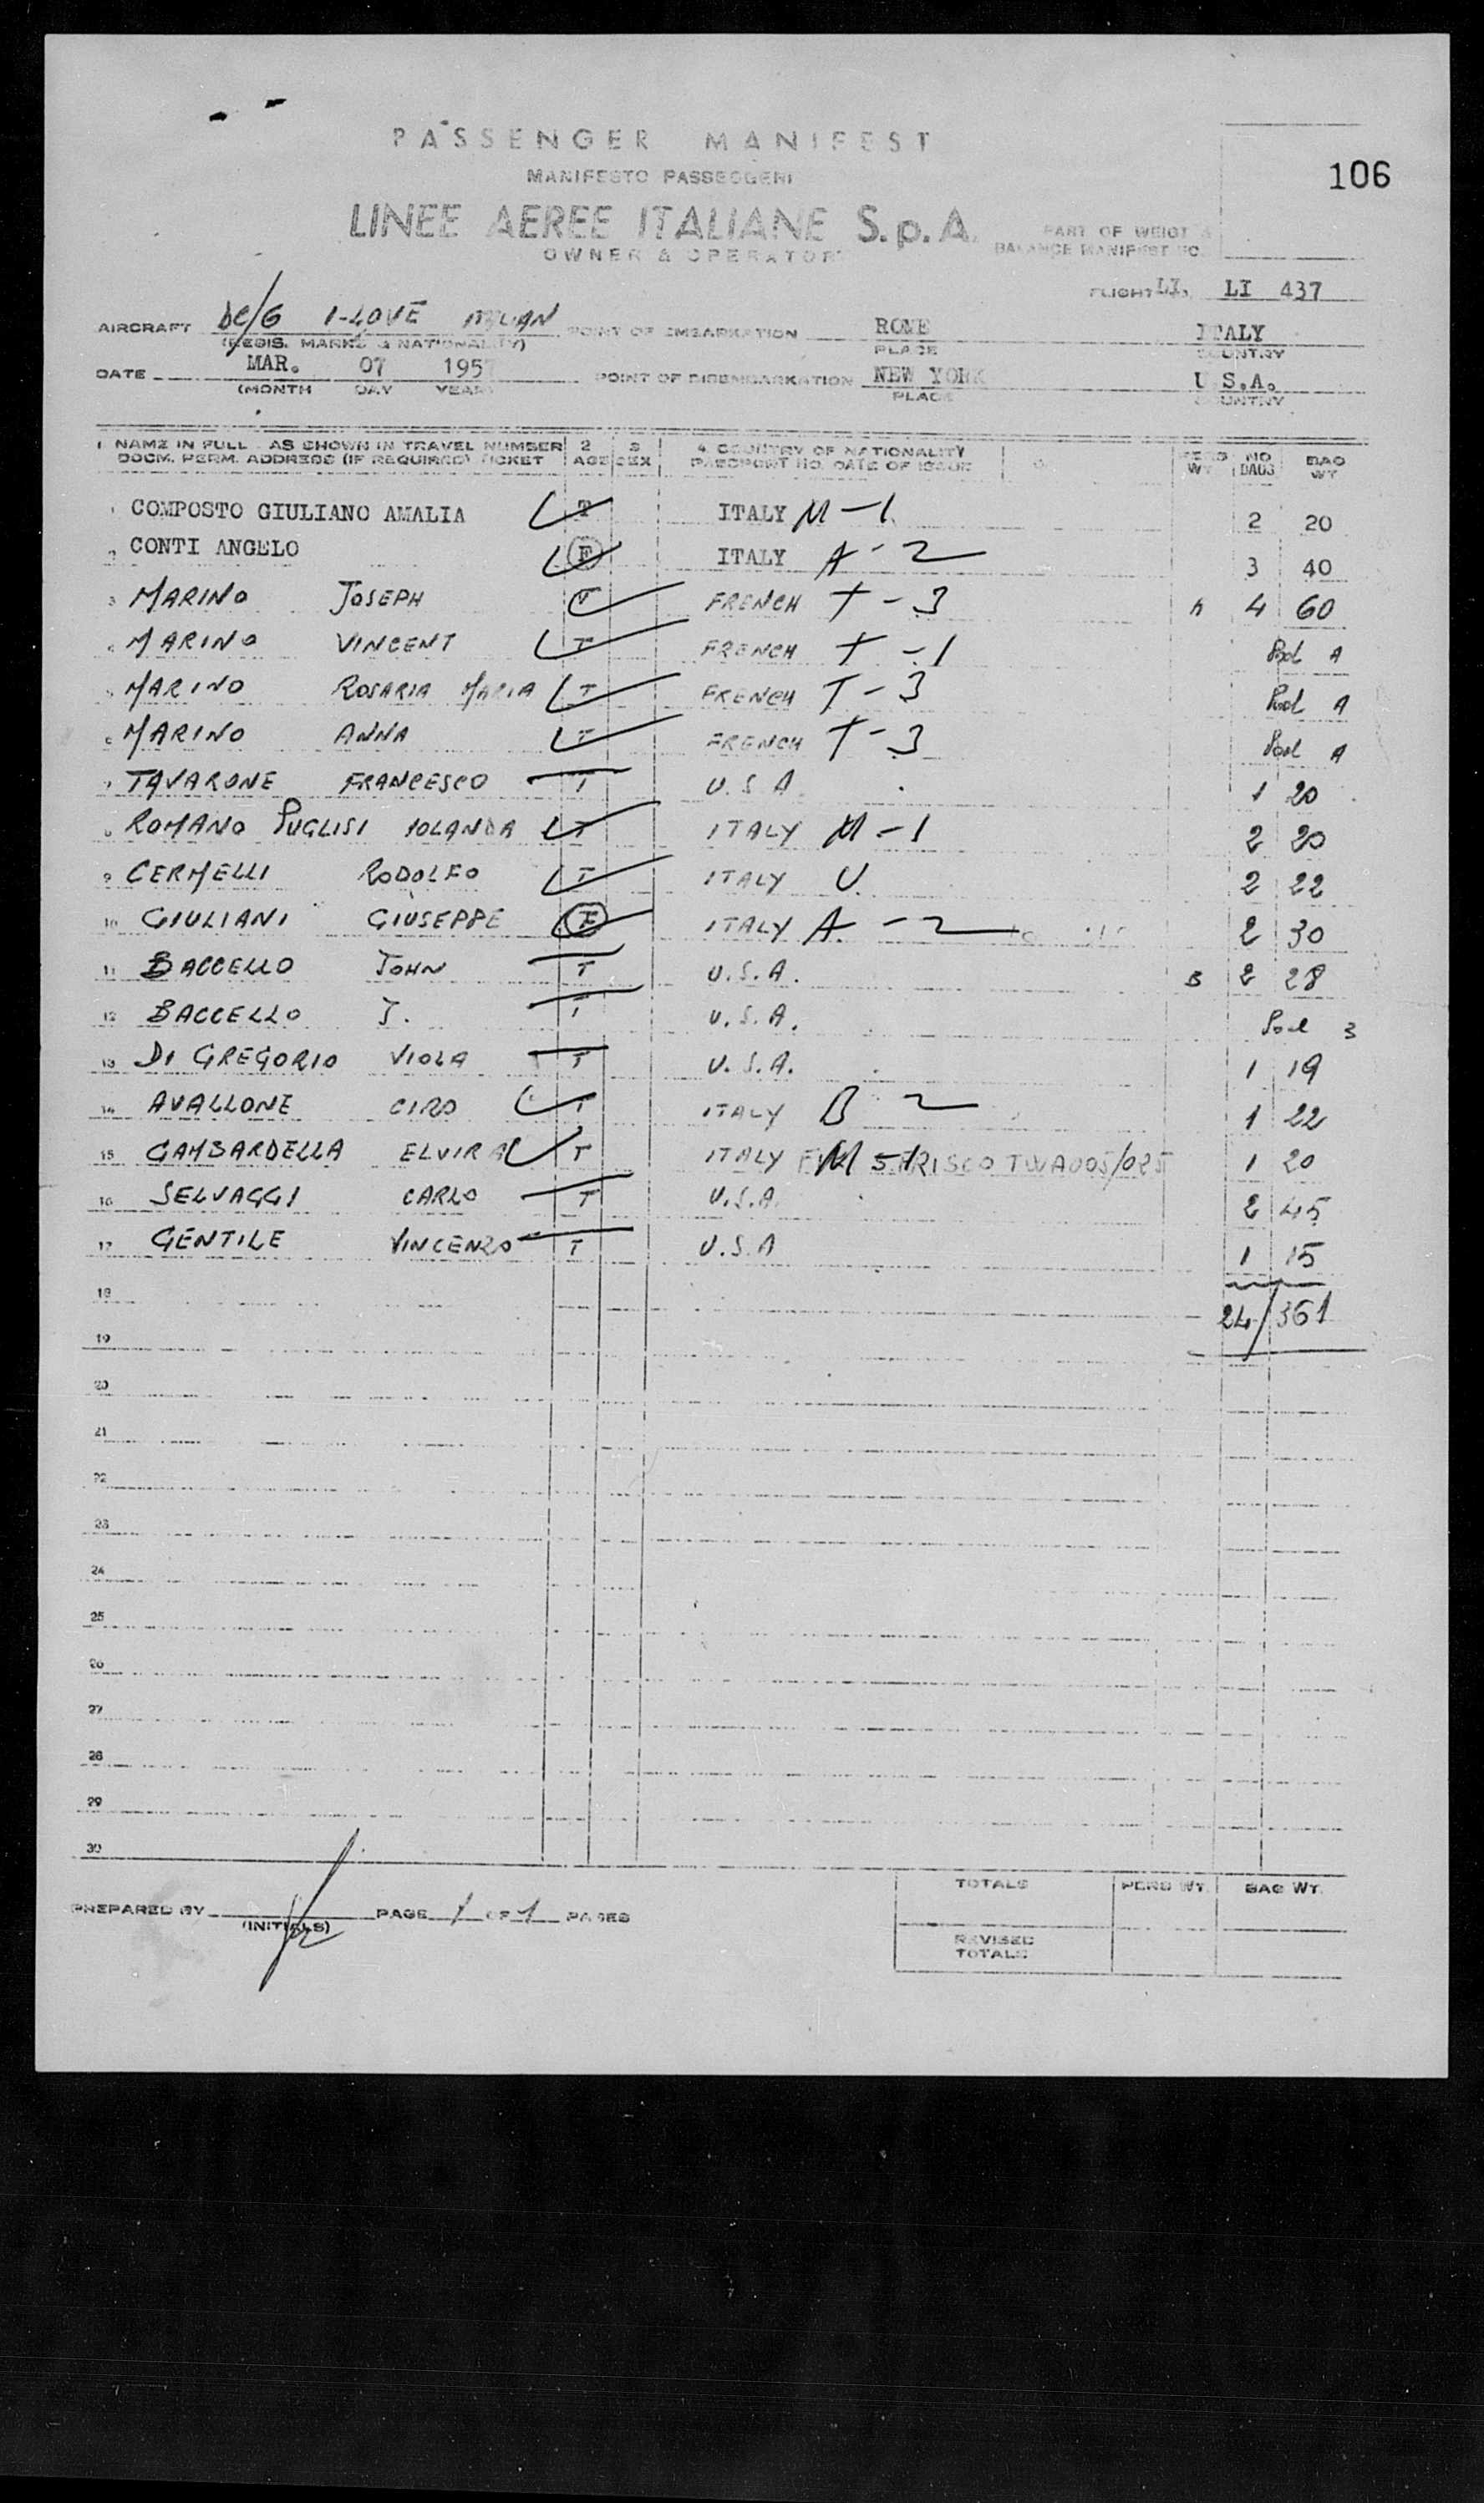 PASSENGER MANIFEST
MANIFESTO PASSEGGERI
106
LINEE AEREE ITALIANE S.p.A.
OWNER & OPERATOR
PART OF WEIGT &
BALANCE MANIFEST NO.
FLIGHT LI. LI 437
AIRCRAFT DC/6 I-LOVE POINT OF EMBARKATION ROME ITALY
(REGIS. MARKS & NATIONALITY) PLACE COUNTRY
DATE MAR. 07 1957 POINT OF DISEMBARKATION NEW YORK U.S.A.
(MONTH DAY YEAR) PLACE COUNTRY
1 NAME IN FULL AS SHOWN IN TRAVEL NUMBER 2 3 4. COUNTRY OF NATIONALITY PERS NO BAG
DOCM. PERM. ADDRESS (IF REQUIRED) TICKET AGE SEX PASSPORT NO. DATE OF ISSUE WT BAGS WT
1 COMPOSTO GIULIANO AMALIA T ITALY M-1 2 20
2 CONTI ANGELO F ITALY A-2 3 40
3 MARINO JOSEPH T FRENCH T-3 A 4 60
4 MARINO VINCENT T FRENCH T-1 Pool A
5 MARINO ROSARIA MARIA T FRENCH T-3 Pool A
6 MARINO ANNA T FRENCH T-3 Pool A
7 TAVARONE FRANCESCO T U.S.A. 1 20
8 ROMANO PUGLISI IOLANDA T ITALY M-1 2 20
9 CERMELLI RODOLFO T ITALY U. 2 22
10 GIULIANI GIUSEPPE F ITALY A.-2 2 30
11 BACCELLO JOHN T U.S.A. B 2 28
12 BACCELLO J. T U.S.A. Pool B
13 DI GREGORIO VIOLA T U.S.A. 1 19
14 AVALLONE CIRO T ITALY B-2 1 22
15 GAMBARDELLA ELVIRA T ITALY FRISCO 1 20
16 SELVAGGI CARLO T U.S.A. 2 45
17 GENTILE VINCENZO T U.S.A 1 15
18 24/361
19
20
21
22
23
24
25
26
27
28
29
30
TOTALS PERS WT. BAG WT.
PREPARED BY PAGE 1 OF 1 PAGES
(INITIALS)
REVISED
TOTALS